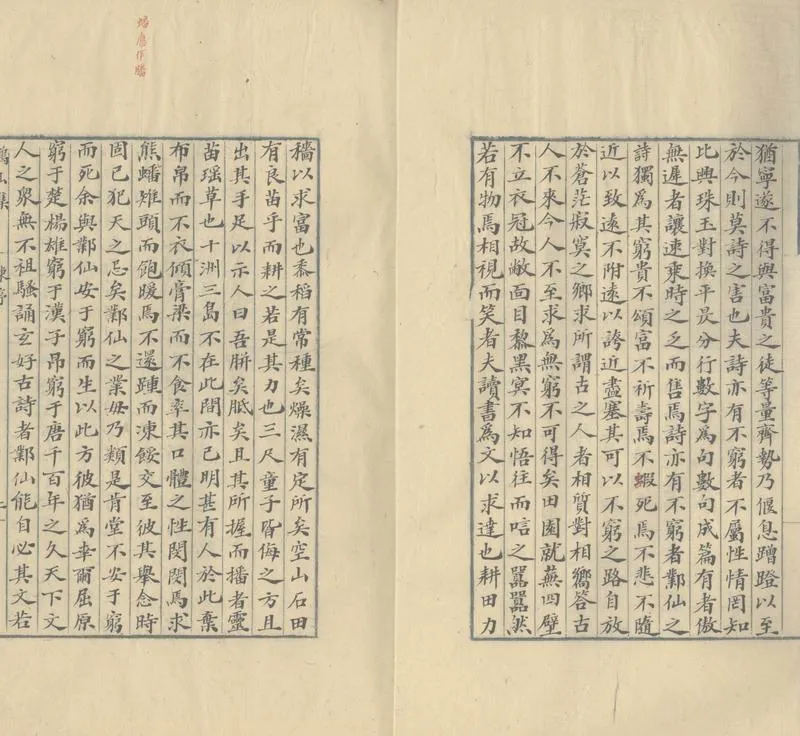 猶寧遂不得與富貴之徒等量齊勢乃偃息蹭蹬以至
於今則莫詩之害也夫詩亦有不窮者不屬性情罔知
比興珠玉對換平昃分行數字為句數句成篇有者傲
無遲者讓速乘時之乏而售焉詩亦有不窮者鄴仙之
詩獨為其窮貴不頌富不祈壽焉不蝦死焉不悲不隨
近以致遠不附遠以誇近盡塞其可以不窮之路自放
於蒼茫寂寞之鄉求所謂古之人者相質對相嚮答古
人不來今人不至求為無窮不可得矣田園就蕪四壁
不立衣冠故敝面目黎黑冥不知悟往而唁之囂囂然
若有物焉相視而笑者夫讀書為文以求達也耕田力
穡以求富也黍稻有常種矣燥濕有定所矣空山石田
有良苗乎而耕之若是其力也三尺童子皆侮之方且
出其手足以示人曰吾胼矣胝矣且其所握而播者靈
苗瑶草也十洲三島不在此間亦已明甚有人於此棄
布帛而不衣傾膏粱而不食率其口體之性閔閔焉求
熊蟠雉頭而飽暖焉不還踵而凍餒交至彼其舉念時
固已犯天之忌矣鄴仙之業毋乃類是肯堂不安于窮
而死余與鄴仙安于窮而生以此方彼猶為幸爾屈原
窮于楚楊雄窮于漢子昂窮于唐千百年之久天下文
人之衆無不祖騷誦玄好古詩者鄴仙能自必其文若
蟠應作膰